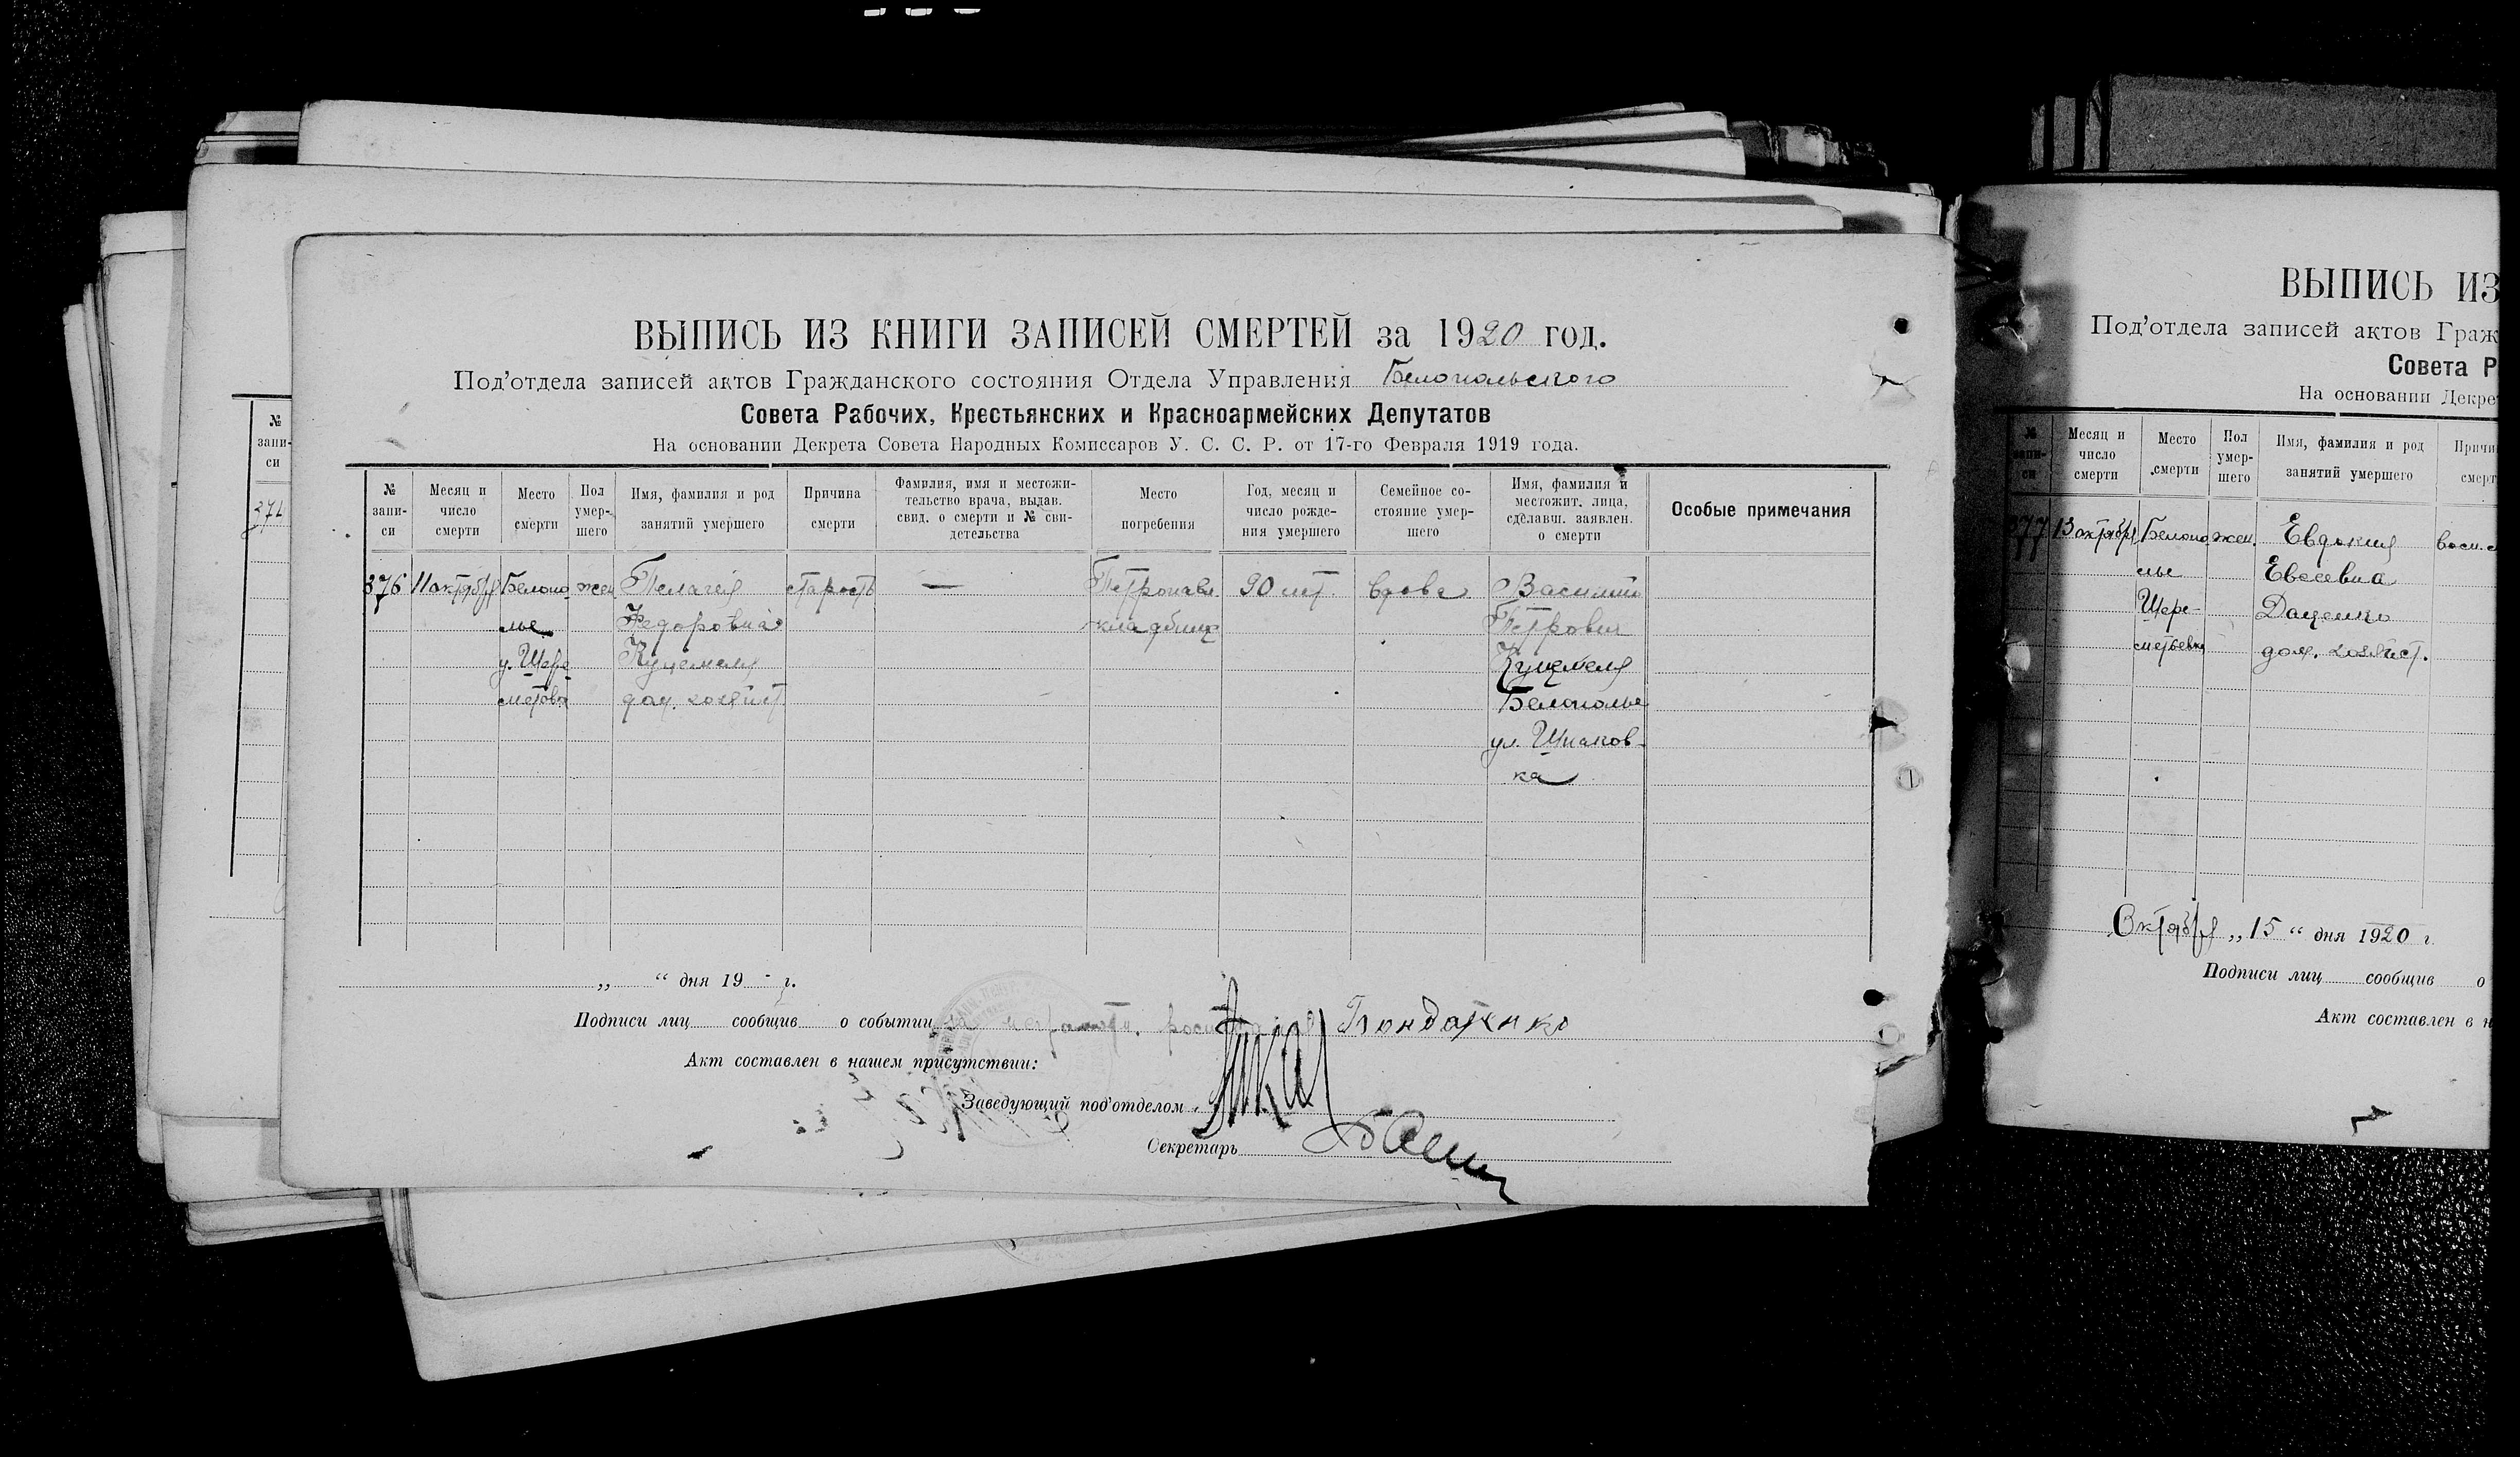 ВЫПИСЬ ИЗ КНИГИ ЗАПИСЕЙ СМЕРТЕЙ за 1920 год.
Под'отдела записей актов Гражданского состояния Отдела Управления Белопольского
Совета Рабочих, Крестьянских и Красноармейских Депутатов
На основании Декрета Совета Народных Комиссаров У. С. С. Р. от 17-го Февраля 1919 года.
№ запи-си
Месяц и число смерти
Место смерти
Пол умер-шего
Имя, фамилия и род занятий умершего
Причина смерти
Фамилия, имя и местожи-тельство врача, выдав. свид. о смерти и № сви-детельства
Место погребения
Год, месяц и число рожде-ния умершего
Семейное со-стояние умер-шего
Имя, фамилия и местожит. лица, сделавш. заявлен. о смерти
Особые примечания
376 11 октября Белопо жен Пелагея старость — Петропавл 90 лет. вдова Василий
лье Федоровна кладбище Петрович
у. Шере Куцемеля Куцемеля
метовка дом. хозяйст Белополье
ул. Шпаков-
ка
„ “ дня 19 - г.
Подписи лиц сообщив о событии Бондаренко
Акт составлен в нашем присутствии:
Заведующий под'отделом
Секретарь
№
запи-
си
ВЫПИСЬ ИЗ
Под'отдела записей актов Граж
Совета Р
На основании Декре
№ запи-си
Месяц и число смерти
Место смерти
Пол умер-шего
Имя, фамилия и род занятий умершего
Причи
смерт
377 13 октября Белопо жен. Евдокия восп.
лье Евсеевна
Шере- Даценко
метьевка дом. хозяйст.
Октября „15“ дня 1920 г.
Подписи лиц сообщив о
Акт составлен в н